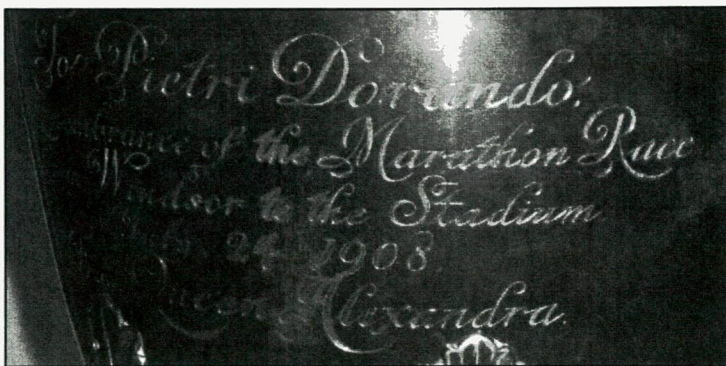 For Pietri Dorando.
embrance of the Marathon Race
Windsor to the Stadium
July 24 1908.
Queen Alexandra.